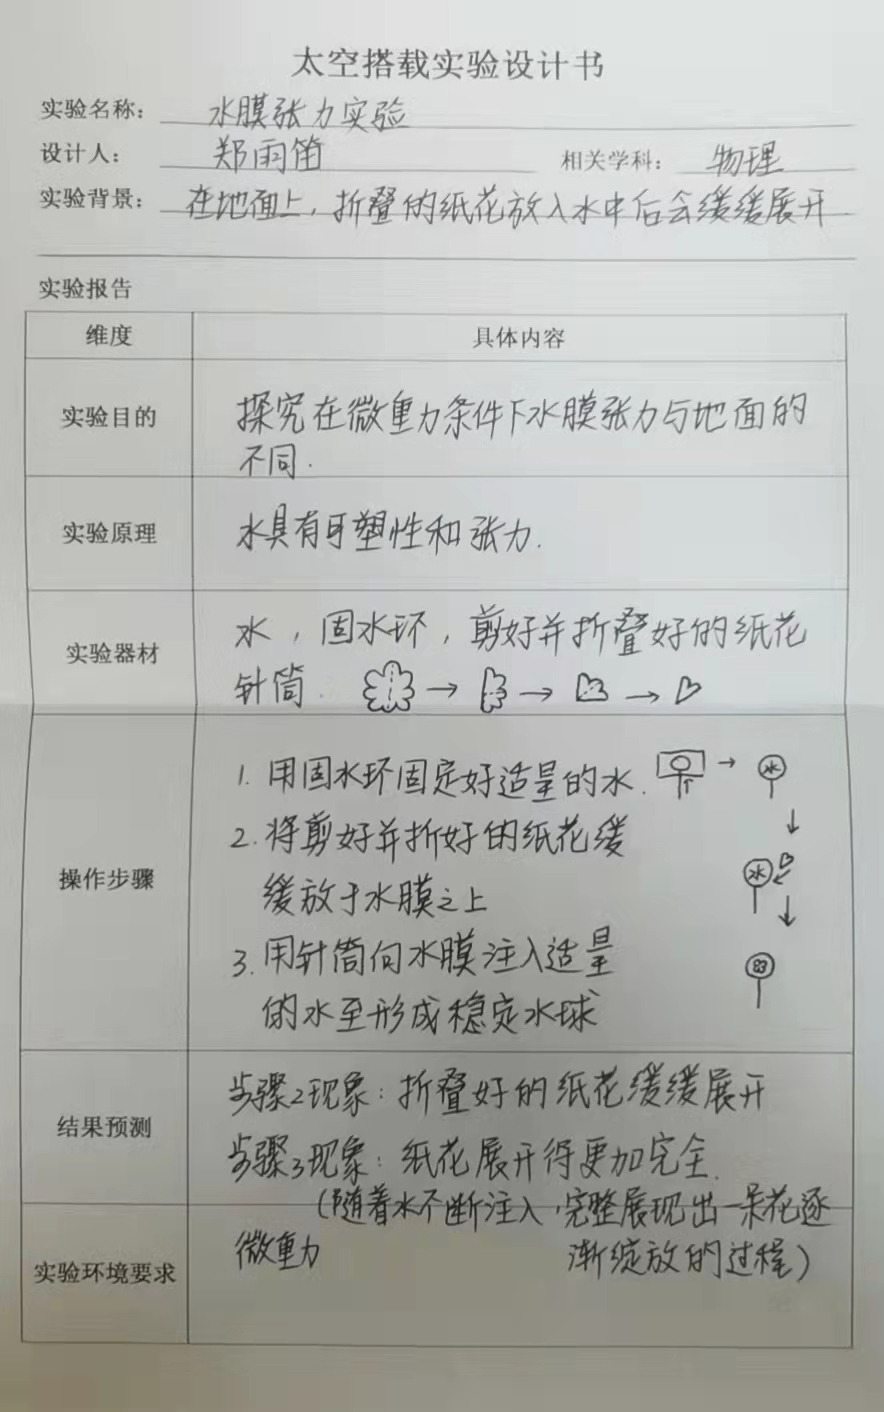 太空搭载实验设计书
实验名称： 水膜张力实验
设计人： 郑雨笛 相关学科： 物理
实验背景： 在地面上，折叠的纸花放入水中后会缓缓展开
实验报告
维度 具体内容
实验目的 探究在微重力条件下水膜张力与地面的
不同.
实验原理 水具有可塑性和张力.
实验器材 水，固水环，剪好并折叠好的纸花
针筒.
操作步骤
1. 用固水环固定好适量的水.
水
2. 将剪好并折好的纸花缓
缓放于水膜之上
水
3. 用针筒向水膜注入适量
的水至形成稳定水球
结果预测
步骤2现象：折叠好的纸花缓缓展开
步骤3现象：纸花展开得更加完全.
(随着水不断注入，完整展现出一朵花逐
渐绽放的过程)
实验环境要求 微重力